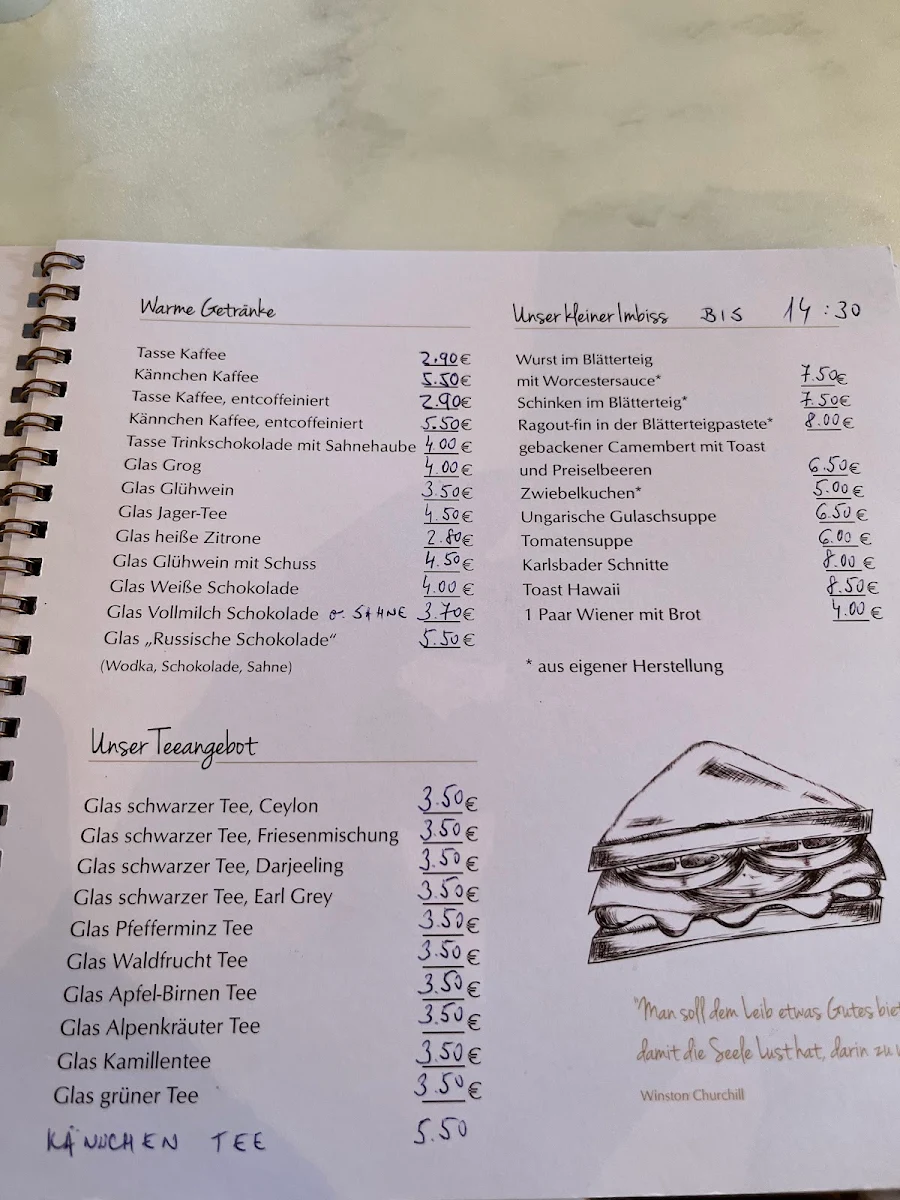 Warme Getränke
Tasse Kaffee 2.90 €
Kännchen Kaffee 5.50 €
Tasse Kaffee, entcoffeiniert 2.90 €
Kännchen Kaffee, entcoffeiniert 5.50 €
Tasse Trinkschokolade mit Sahnehaube 4.00 €
Glas Grog 4.00 €
Glas Glühwein 3.50 €
Glas Jager-Tee 4.50 €
Glas heiße Zitrone 2.80 €
Glas Glühwein mit Schuss 4.50 €
Glas Weiße Schokolade 4.00 €
Glas Vollmilch Schokolade o. SAHNE 3.70 €
Glas „Russische Schokolade“ 5.50 €
(Wodka, Schokolade, Sahne)
Unser Teeangebot
Glas schwarzer Tee, Ceylon 3.50 €
Glas schwarzer Tee, Friesenmischung 3.50 €
Glas schwarzer Tee, Darjeeling 3.50 €
Glas schwarzer Tee, Earl Grey 3.50 €
Glas Pfefferminz Tee 3.50 €
Glas Waldfrucht Tee 3.50 €
Glas Apfel-Birnen Tee 3.50 €
Glas Alpenkräuter Tee 3.50 €
Glas Kamillentee 3.50 €
Glas grüner Tee 3.50 €
KÄNNCHEN TEE 5.50
Unser kleiner Imbiss BIS 14:30
Wurst im Blätterteig
mit Worcestersauce* 7.50 €
Schinken im Blätterteig* 7.50 €
Ragout-fin in der Blätterteigpastete* 8.00 €
gebackener Camembert mit Toast
und Preiselbeeren 6.50 €
Zwiebelkuchen* 5.00 €
Ungarische Gulaschsuppe 6.50 €
Tomatensuppe 6.00 €
Karlsbader Schnitte 8.00 €
Toast Hawaii 8.50 €
1 Paar Wiener mit Brot 4.00 €
* aus eigener Herstellung
"Man soll dem Leib etwas Gutes
damit die Seele Lust hat, darin zu
Winston Churchill